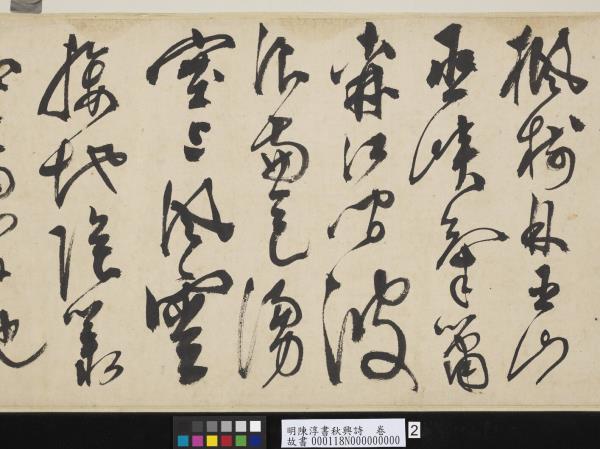 楓樹林巫山
巫峽氣蕭
森江間波
浪兼天湧
塞上風雲
接地陰叢
明陳淳書秋興詩　卷
故書 000118N000000000
2